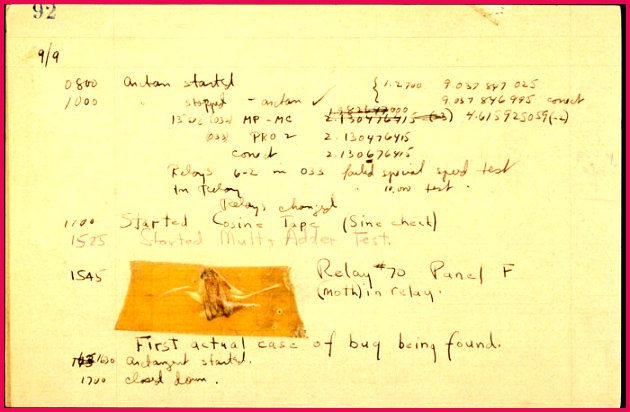 92
9/9
0800 Antan started { 1.2700 9.037 847 025
1000 " stopped - antan ✓ 9.037 846 995 correct
13"uc (032) MP-MC 2.130476415 4.615925059(-2)
(033) PRO 2 2.130476415
correct 2.130676415
Relays 6-2 in 033 failed special speed test
in Relay " 10,000 test.
Relays changed
1100 Started Cosine Tape (Sine check)
1525 Started Mult+Adder Test.
1545 Relay #70 Panel F
(moth) in relay.
First actual case of bug being found.
1630 Antangent started.
1700 closed down.